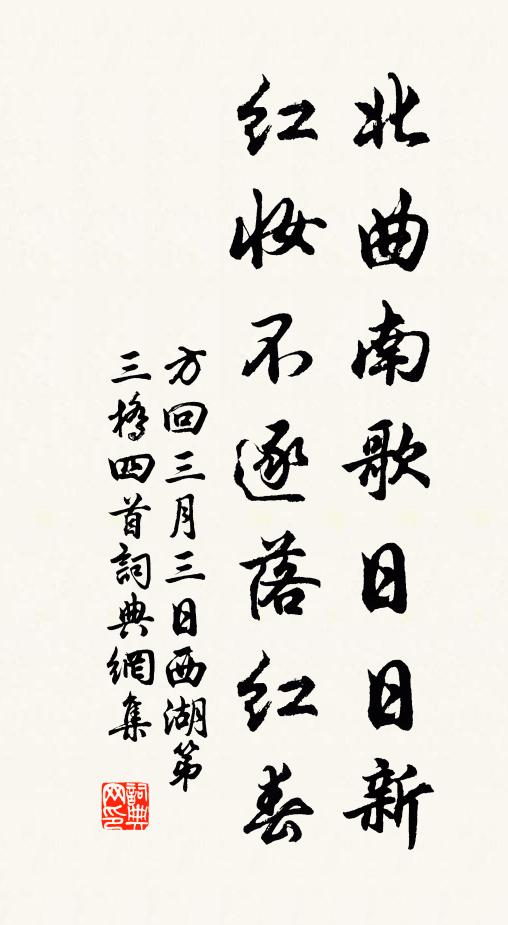 北曲南歌日日新
紅妝不逐落紅春
方回三月三日西湖第
三橋四首詞典網集
詞典
网印